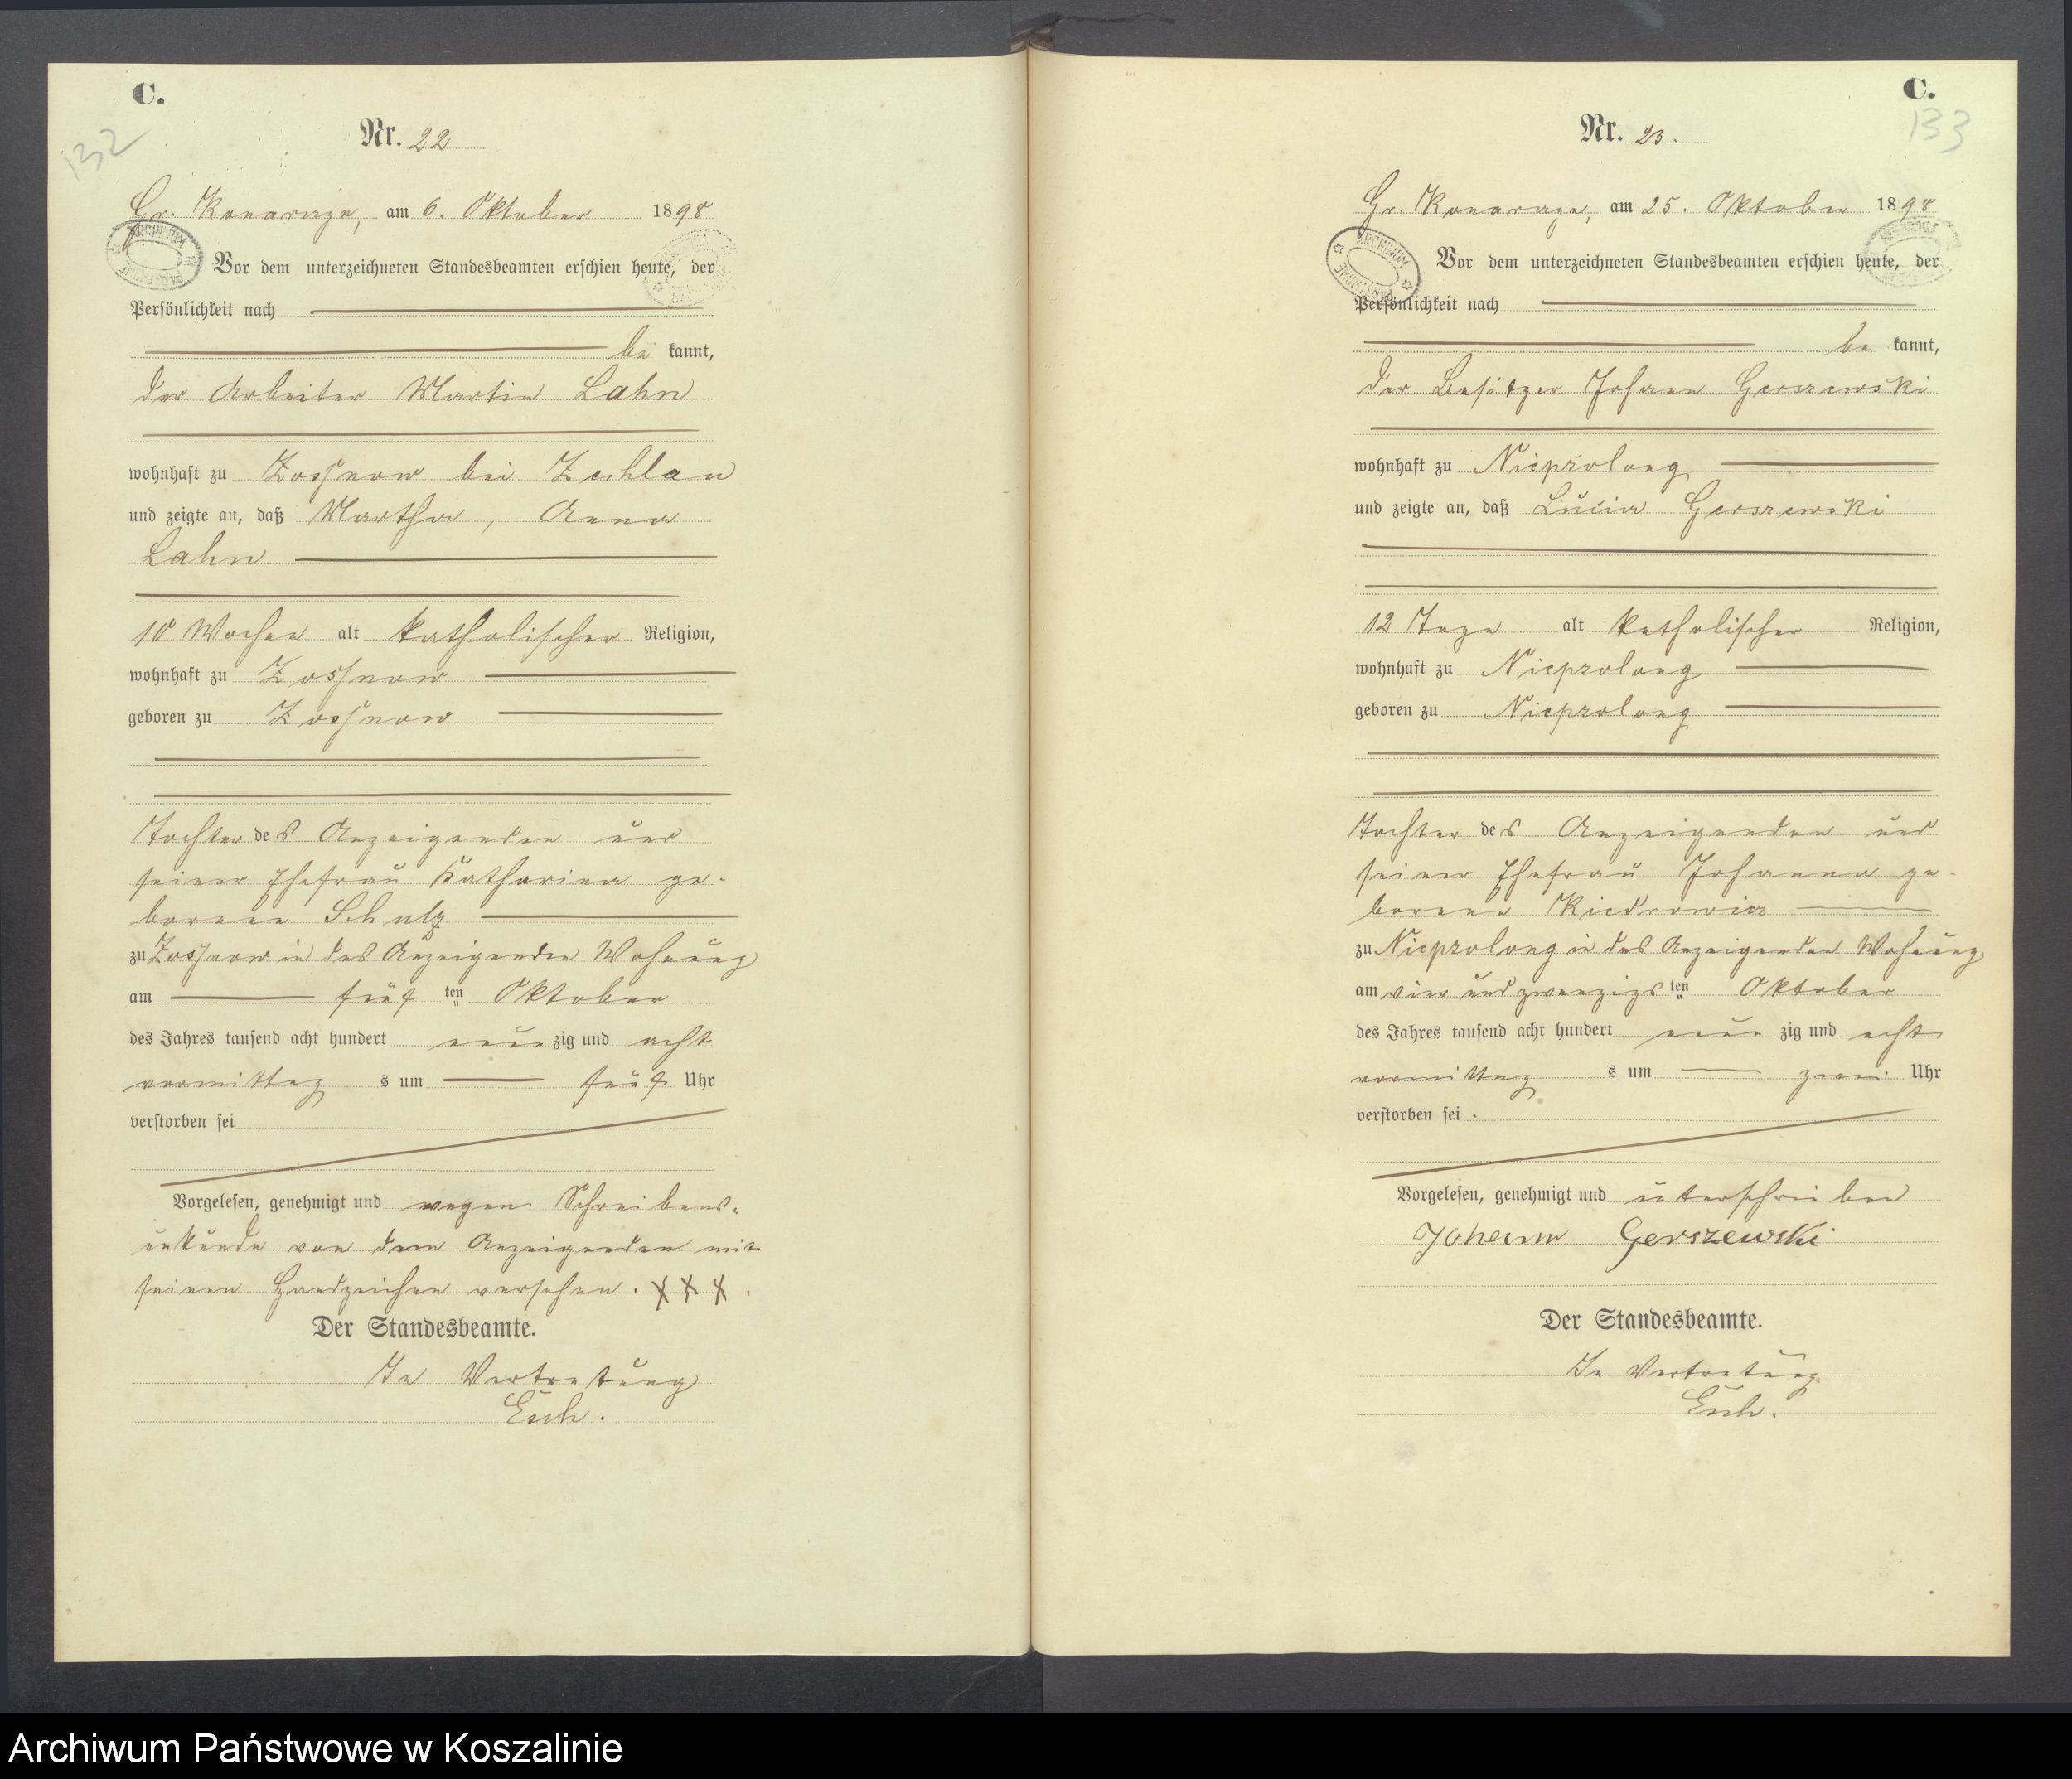 C.
132
Nr. 22
Gr. Konarczyn, am 6. Oktober 1898
Vor dem unterzeichneten Standesbeamten erschien heute, der
Persönlichkeit nach
be kannt,
der Arbeiter Martin Lahn
wohnhaft zu Zossnow bei Zechlau
und zeigte an, daß Martha, Anna
Lahn
10 Wochen alt katholischer Religion,
wohnhaft zu Zossnow
geboren zu Zossnow
Tochter des Anzeigenden und
seiner Ehefrau Katharina ge-
borene Schulz
zu Zossnow in des Anzeigenden Wohnung
am fünf ten Oktober
des Jahres tausend acht hundert neun zig und acht
vormittag s um fünf Uhr
verstorben sei
Vorgelesen, genehmigt und wegen Schreibens-
unkunde von dem Anzeigenden mit
seinen Handzeichen versehen. XXX.
Der Standesbeamte.
In Vertretung
Esch.
C.
133
Nr. 23.
Gr. Konarczyn, am 25. Oktober 1898
Vor dem unterzeichneten Standesbeamten erschien heute, der
Persönlichkeit nach
be kannt,
der Besitzer Johann Gerszewski
wohnhaft zu Nieprzolong
und zeigte an, daß Lucia Gerszewski
12 Tage alt katholischer Religion,
wohnhaft zu Nieprzolong
geboren zu Nieprzolong
Tochter des Anzeigenden und
seiner Ehefrau Johanna ge-
borene Kiedrowicz
zu Nieprzolong in des Anzeigenden Wohnung
am vier und zwanzigs ten Oktober
des Jahres tausend acht hundert neun zig und acht
vormittag s um zwei Uhr
verstorben sei.
Vorgelesen, genehmigt und unterschrieben
Johann Gerszewski
Der Standesbeamte.
In Vertretung
Esch.
Archiwum Państwowe w Koszalinie